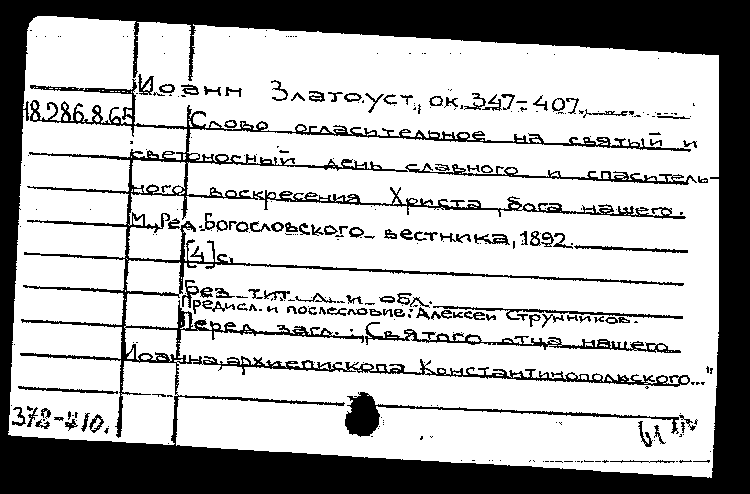 Иоанн Златоуст, ок. 347-407.
18.286.8.65
Слово огласительное на святый и
светоносный день славного и спаситель-
ного воскресения Христа, бога нашего.
М., Ред. Богословского вестника, 1892.
[4]с.
Без тит. л. и обл.
Предисл. и послесловие: Алексей Струнников.
Перед загл.: „Святого отца нашего
Иоанна, архиепископа Константинопольского..."
372-710.
61